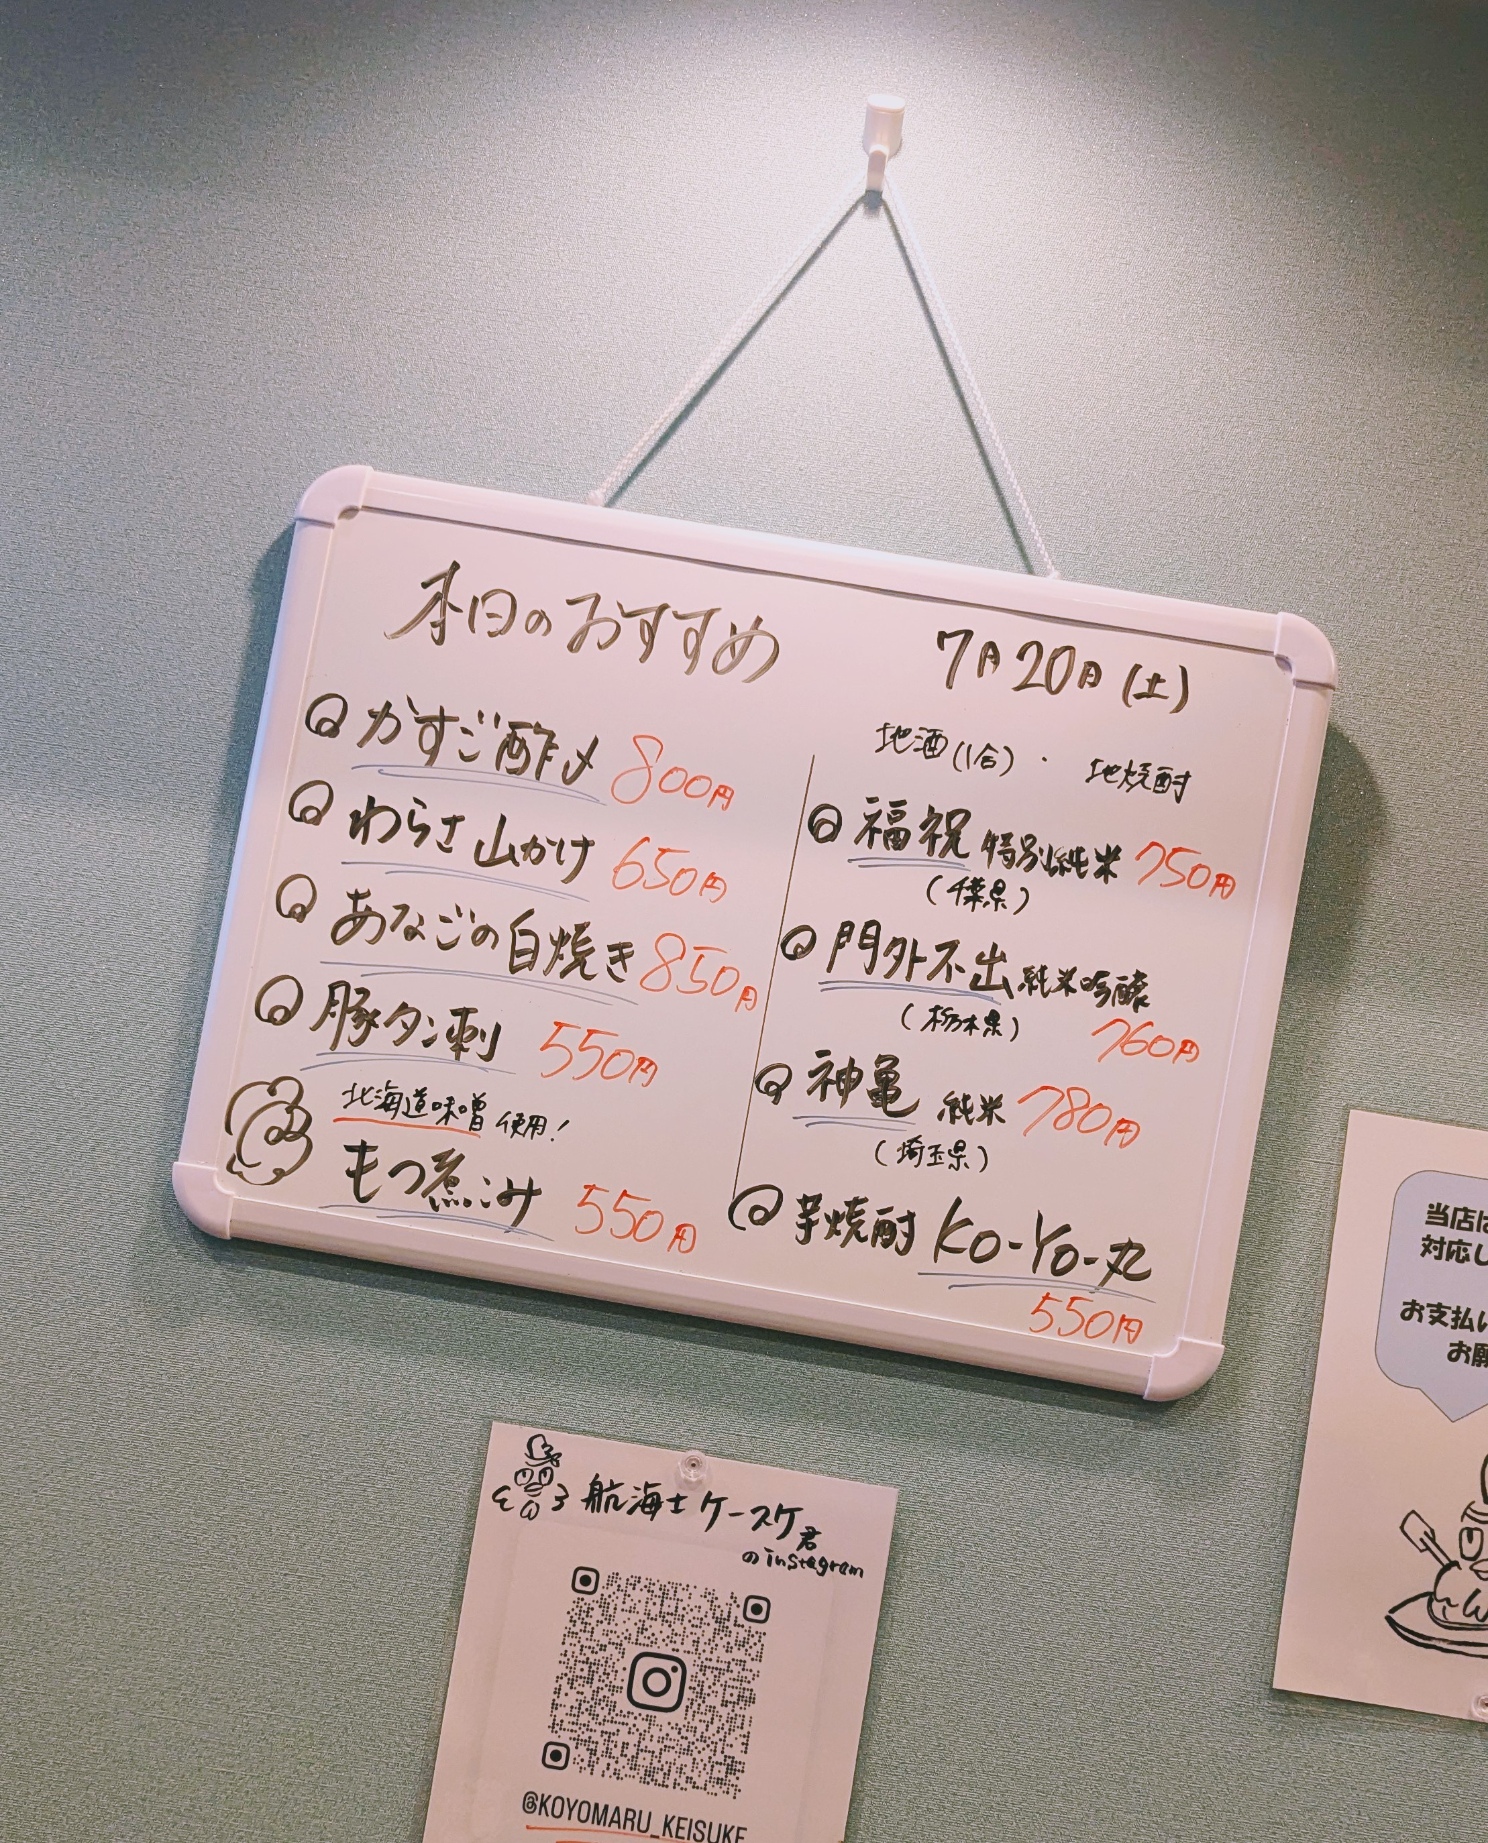 本日のおすすめ
7月20日(土)
かすご酢〆 800円
わらさ山かけ 650円
あなごの白焼き 850円
豚タン刺 550円
北海道味噌使用!
もつ煮こみ 550円
地酒(1合)・地焼酎
福祝 特別純米 750円
(千葉県)
門外不出 純米吟醸
(栃木県) 760円
神亀 純米 780円
(埼玉県)
芋焼酎 KO-YO-丸
550円
航海士ケースケ君
のinstagram
@KOYOMARU_KEISUKE
当店は
対応し
お支払い
お願